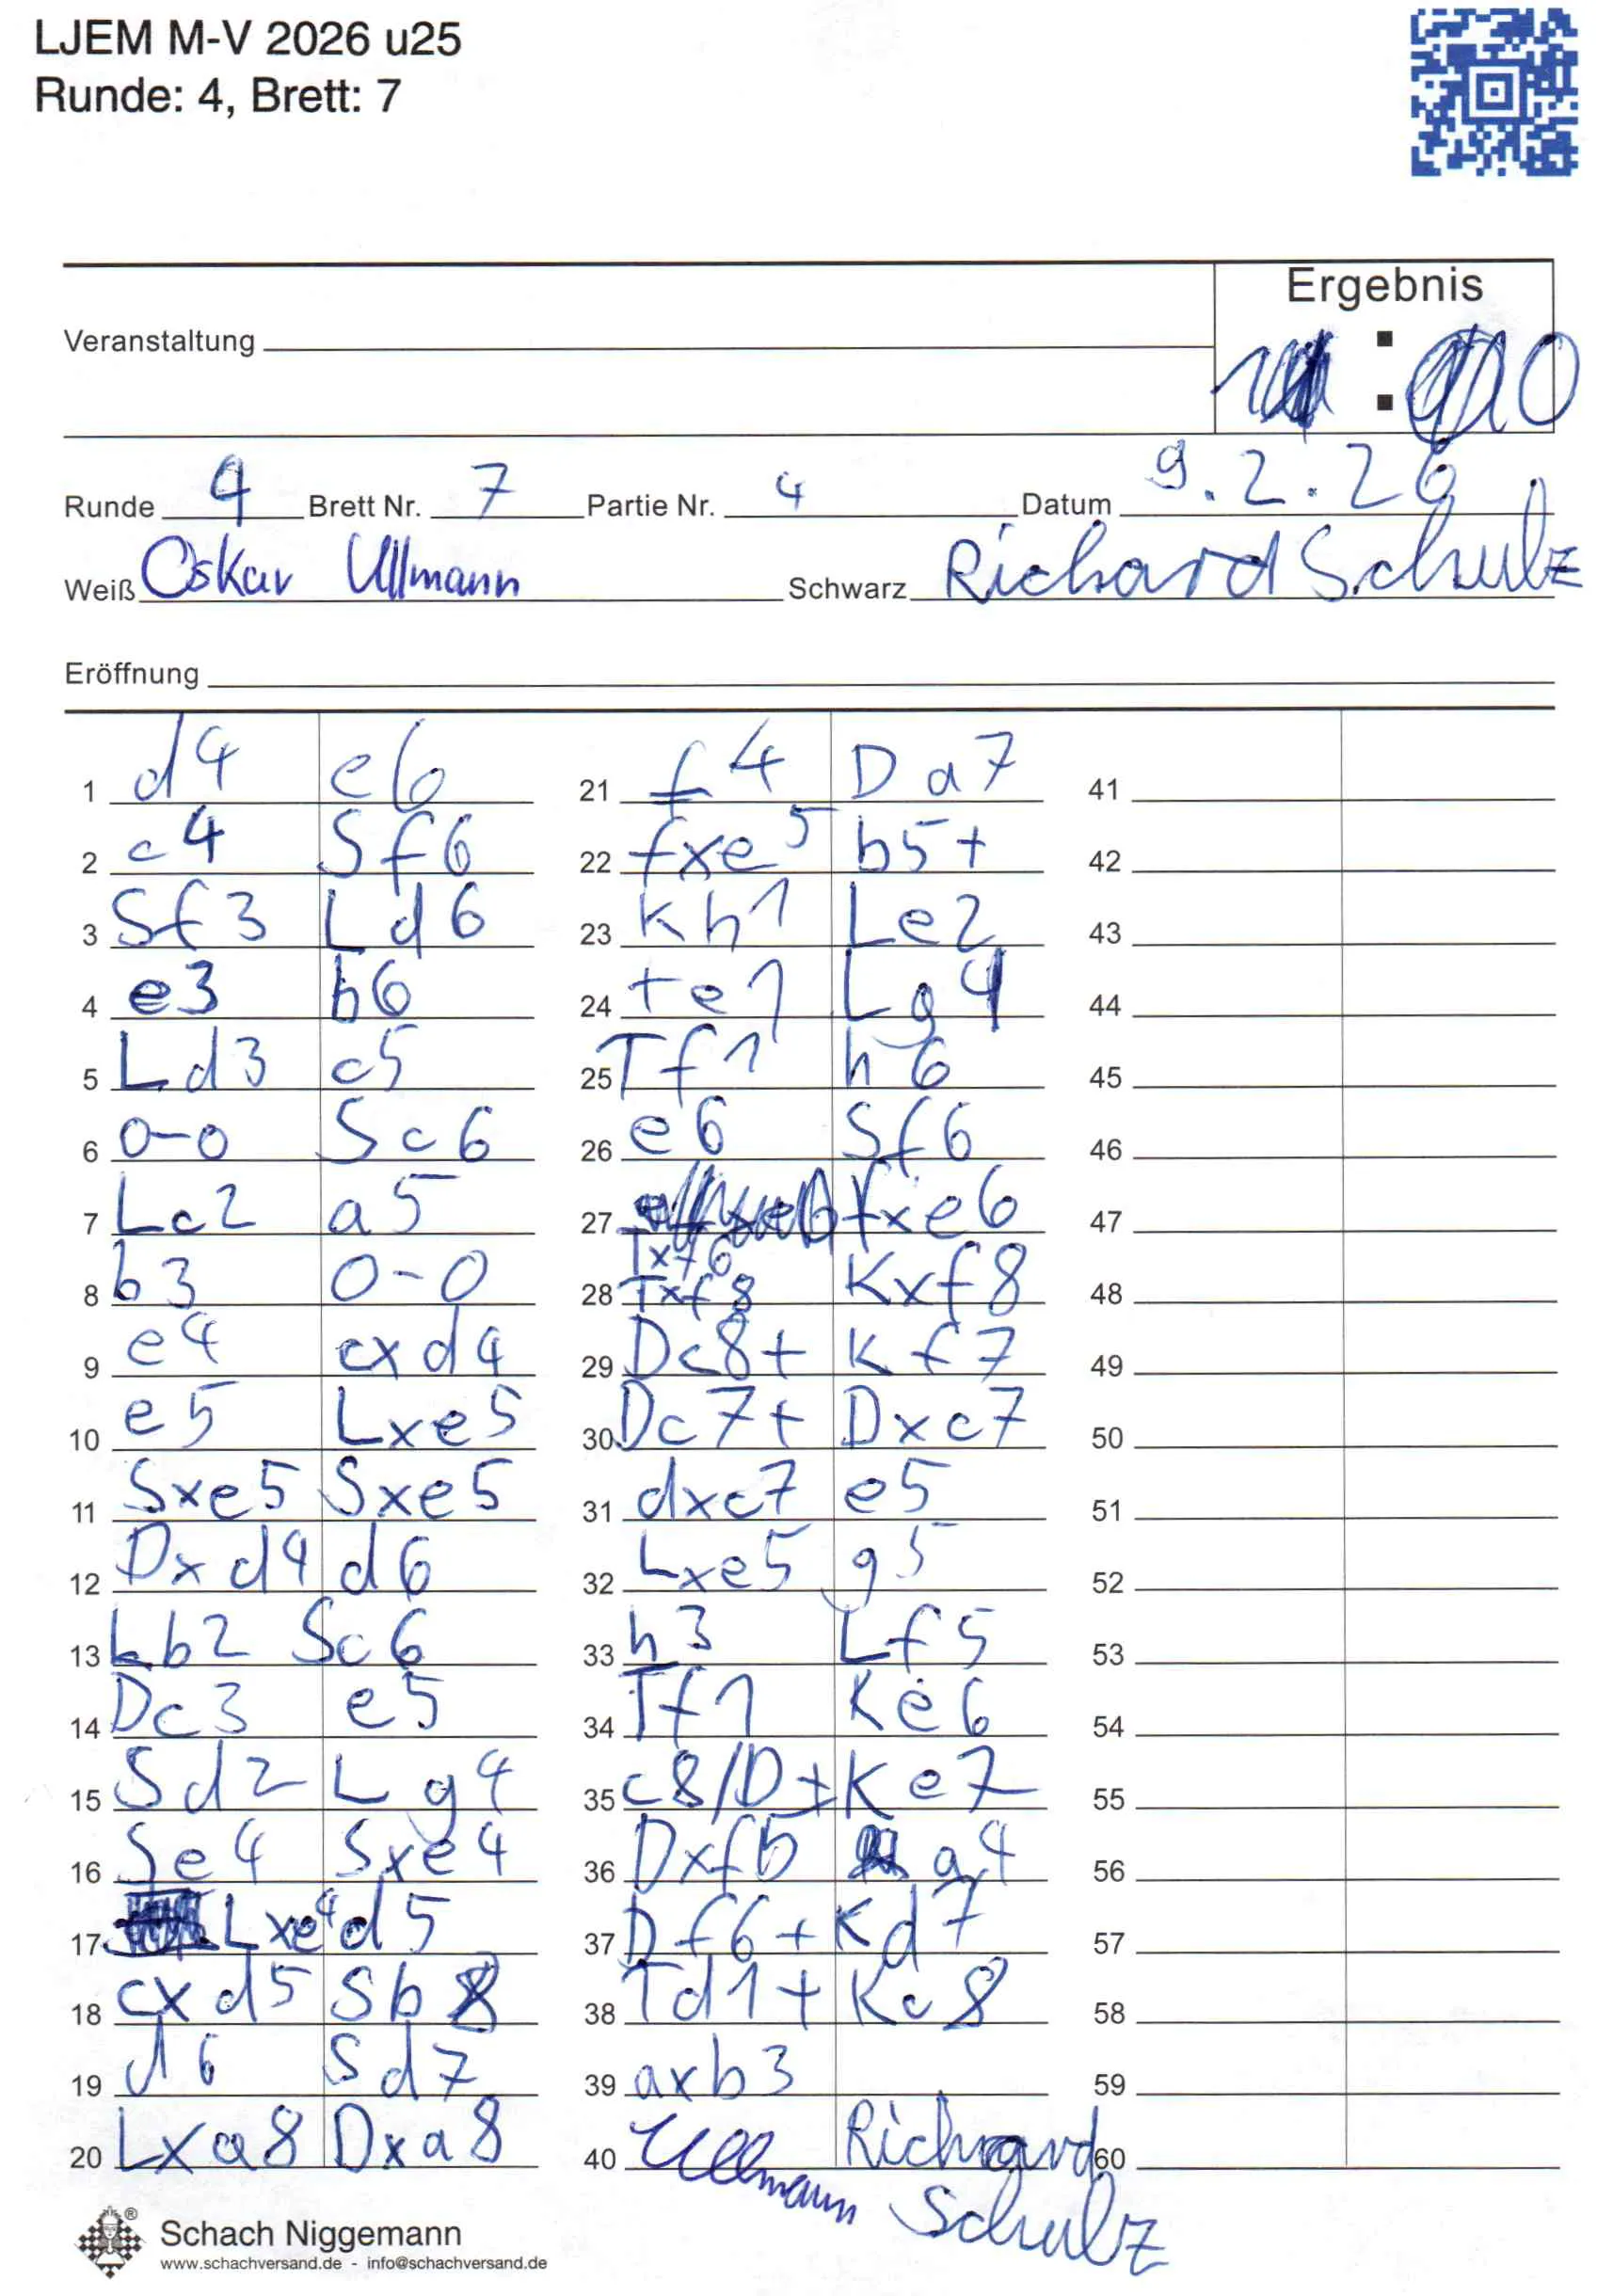 LJEM M-V 2026 u25
Runde: 4, Brett: 7
Ergebnis
Veranstaltung
:
0
Runde 4 Brett Nr. 7 Partie Nr. 4 Datum 9.2.26
Weiß Oskar Ullmann Schwarz Richard Schulz
Eröffnung
1 d4 e6 21 f4 Da7 41
2 c4 Sf6 22 fxe5 b5+ 42
3 Sf3 Ld6 23 Kh1 Le2 43
4 e3 b6 24 te1 Lg4 44
5 Ld3 c5 25 Tf1 h6 45
6 0-0 Sc6 26 e6 Sf6 46
7 Lc2 a5 27 Txf6 fxe6 47
8 b3 0-0 28 Txf8 Kxf8 48
9 e4 cxd4 29 Dc8+ Kf7 49
10 e5 Lxe5 30 Dc7+ Dxc7 50
11 Sxe5 Sxe5 31 dxc7 e5 51
12 Dxd4 d6 32 Lxe5 g5 52
13 Lb2 Sc6 33 h3 Lf5 53
14 Dc3 e5 34 Tf1 Ke6 54
15 Sd2 Lg4 35 c8/D+ Ke7 55
16 Se4 Sxe4 36 Dxf5 a4 56
17 Lxe4 d5 37 Df6+ Kd7 57
18 cxd5 Sb8 38 Td1+ Kc8 58
19 d6 Sd7 39 axb3 59
20 Lxa8 Dxa8 40 Ullmann Richard 60
Schulz
Schach Niggemann
www.schachversand.de - info@schachversand.de